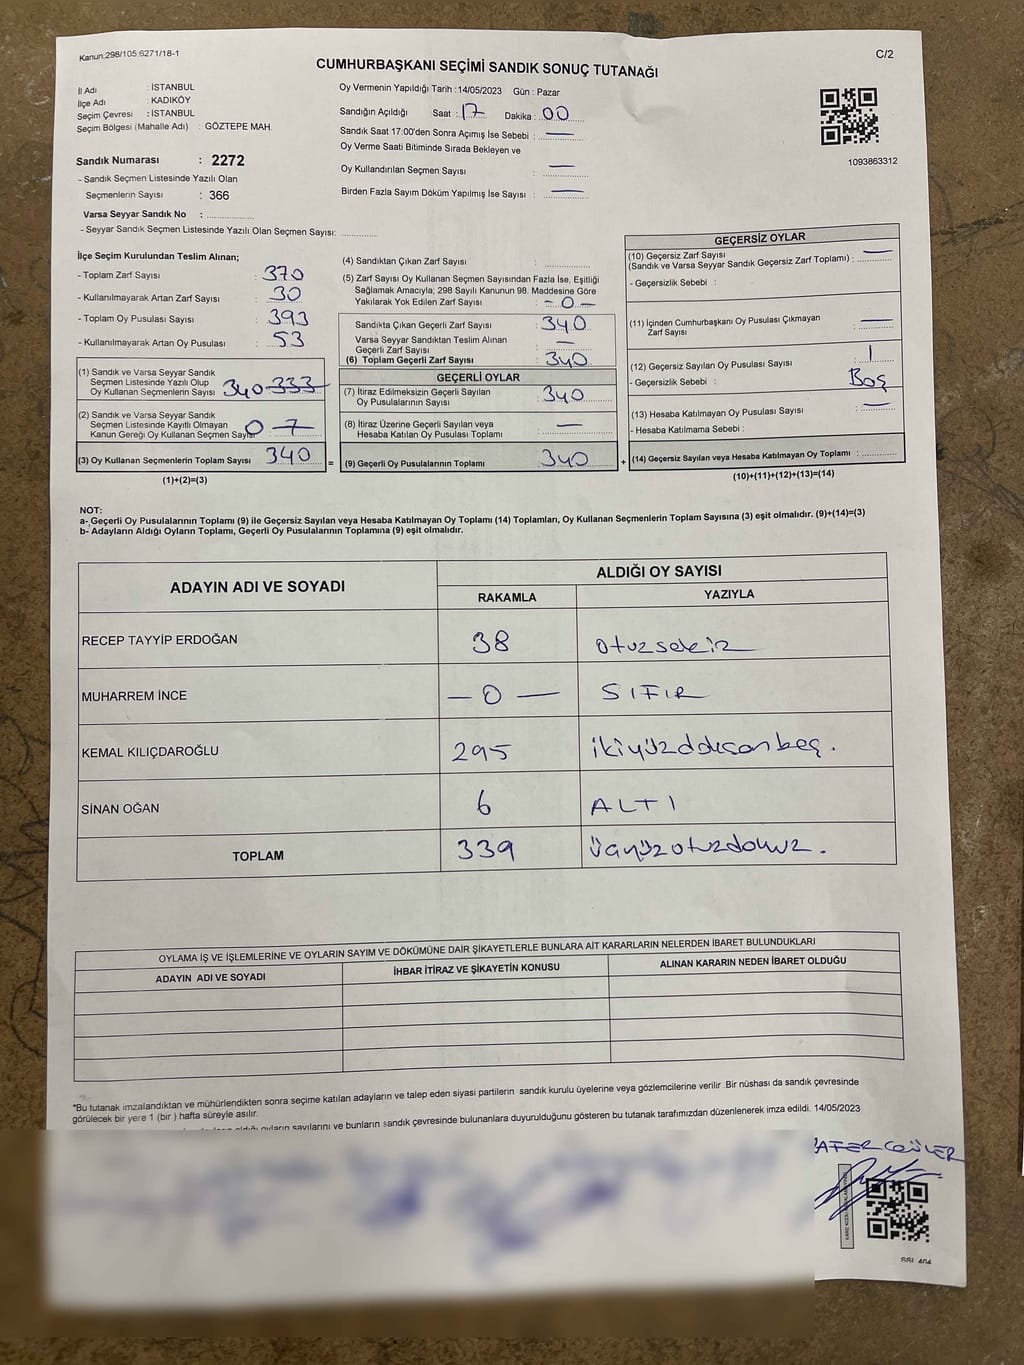 Kanun:298/105;6271/18-1
C/2
CUMHURBAŞKANI SEÇİMİ SANDIK SONUÇ TUTANAĞI
İl Adı : İSTANBUL
İlçe Adı : KADIKÖY
Seçim Çevresi : İSTANBUL
Seçim Bölgesi (Mahalle Adı) : GÖZTEPE MAH.
Sandık Numarası : 2272
- Sandık Seçmen Listesinde Yazılı Olan
Seçmenlerin Sayısı : 366
Varsa Seyyar Sandık No :
- Seyyar Sandık Seçmen Listesinde Yazılı Olan Seçmen Sayısı:
Oy Vermenin Yapıldığı Tarih :14/05/2023 Gün : Pazar
Sandığın Açıldığı Saat : 17 Dakika : 00
Sandık Saat 17:00'den Sonra Açımış İse Sebebi : —
Oy Verme Saati Bitiminde Sırada Bekleyen ve
Oy Kullandırılan Seçmen Sayısı : —
Birden Fazla Sayım Döküm Yapılmış İse Sayısı : —
1093863312
İlçe Seçim Kurulundan Teslim Alınan;
- Toplam Zarf Sayısı : 370
- Kullanılmayarak Artan Zarf Sayısı : 30
- Toplam Oy Pusulası Sayısı : 393
- Kullanılmayarak Artan Oy Pusulası : 53
(1) Sandık ve Varsa Seyyar Sandık
Seçmen Listesinde Yazılı Olup
Oy Kullanan Seçmenlerin Sayısı 340 333
(2) Sandık ve Varsa Seyyar Sandık
Seçmen Listesinde Kayıtlı Olmayan
Kanun Gereği Oy Kullanan Seçmen Sayısı 0 7
(3) Oy Kullanan Seçmenlerin Toplam Sayısı 340
(1)+(2)=(3)
(4) Sandıktan Çıkan Zarf Sayısı :
(5) Zarf Sayısı Oy Kullanan Seçmen Sayısından Fazla İse, Eşitliği
Sağlamak Amacıyla; 298 Sayılı Kanunun 98. Maddesine Göre
Yakılarak Yok Edilen Zarf Sayısı : - 0 -
Sandıkta Çıkan Geçerli Zarf Sayısı : 340
Varsa Seyyar Sandıktan Teslim Alınan
Geçerli Zarf Sayısı : —
(6) Toplam Geçerli Zarf Sayısı : 340
GEÇERLİ OYLAR
(7) İtiraz Edilmeksizin Geçerli Sayılan
Oy Pusulalarının Sayısı : 340
(8) İtiraz Üzerine Geçerli Sayılan veya
Hesaba Katılan Oy Pusulası Toplamı : —
= (9) Geçerli Oy Pusulalarının Toplamı 340 +
GEÇERSİZ OYLAR
(10) Geçersiz Zarf Sayısı
(Sandık ve Varsa Seyyar Sandık Geçersiz Zarf Toplamı) : —
- Geçersizlik Sebebi :
(11) İçinden Cumhurbaşkanı Oy Pusulası Çıkmayan
Zarf Sayısı : —
(12) Geçersiz Sayılan Oy Pusulası Sayısı : 1
- Geçersizlik Sebebi : Boş
(13) Hesaba Katılmayan Oy Pusulası Sayısı : —
- Hesaba Katılmama Sebebi :
(14) Geçersiz Sayılan veya Hesaba Katılmayan Oy Toplamı :
(10)+(11)+(12)+(13)=(14)
NOT:
a- Geçerli Oy Pusulalarının Toplamı (9) ile Geçersiz Sayılan veya Hesaba Katılmayan Oy Toplamı (14) Toplamları, Oy Kullanan Seçmenlerin Toplam Sayısına (3) eşit olmalıdır. (9)+(14)=(3)
b- Adayların Aldığı Oyların Toplamı, Geçerli Oy Pusulalarının Toplamına (9) eşit olmalıdır.
ADAYIN ADI VE SOYADI ALDIĞI OY SAYISI
RAKAMLA YAZIYLA
RECEP TAYYİP ERDOĞAN 38 otuzsekiz
MUHARREM İNCE — 0 — SIFIR
KEMAL KILIÇDAROĞLU 295 ikiyüzdoksanbeş.
SİNAN OĞAN 6 ALTI
TOPLAM 339 üçyüzotuzdokuz.
OYLAMA İŞ VE İŞLEMLERİNE VE OYLARIN SAYIM VE DÖKÜMÜNE DAİR ŞİKAYETLERLE BUNLARA AİT KARARLARIN NELERDEN İBARET BULUNDUKLARI
ADAYIN ADI VE SOYADI İHBAR İTİRAZ VE ŞİKAYETİN KONUSU ALINAN KARARIN NEDEN İBARET OLDUĞU
*Bu tutanak imzalandıktan ve mühürlendikten sonra seçime katılan adayların ve talep eden siyasi partilerin sandık kurulu üyelerine veya gözlemcilerine verilir .Bir nüshası da sandık çevresinde
görülecek bir yere 1 (bir ) hafta süreyle asılır.
oyların sayılarını ve bunların sandık çevresinde bulunanlara duyurulduğunu gösteren bu tutanak tarafımızdan düzenlenerek imza edildi. 14/05/2023
GÜLER